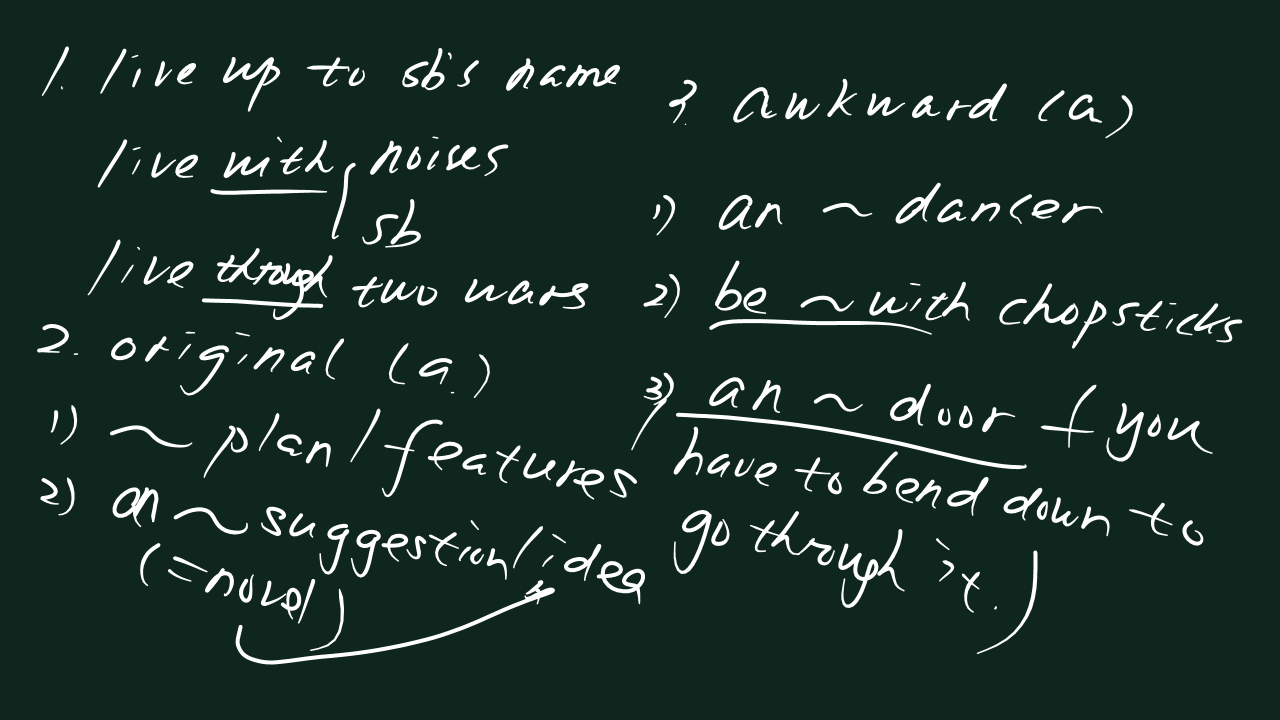 1. live up to sb's name
live with noises
sb
live through two wars
2. original (a.)
1) ~ plan/features
2) an ~ suggestion/idea
(=novel)
3. awkward (a)
1) an ~ dancer
2) be ~ with chopsticks
3) an ~ door (you
have to bend down to
go through it.)